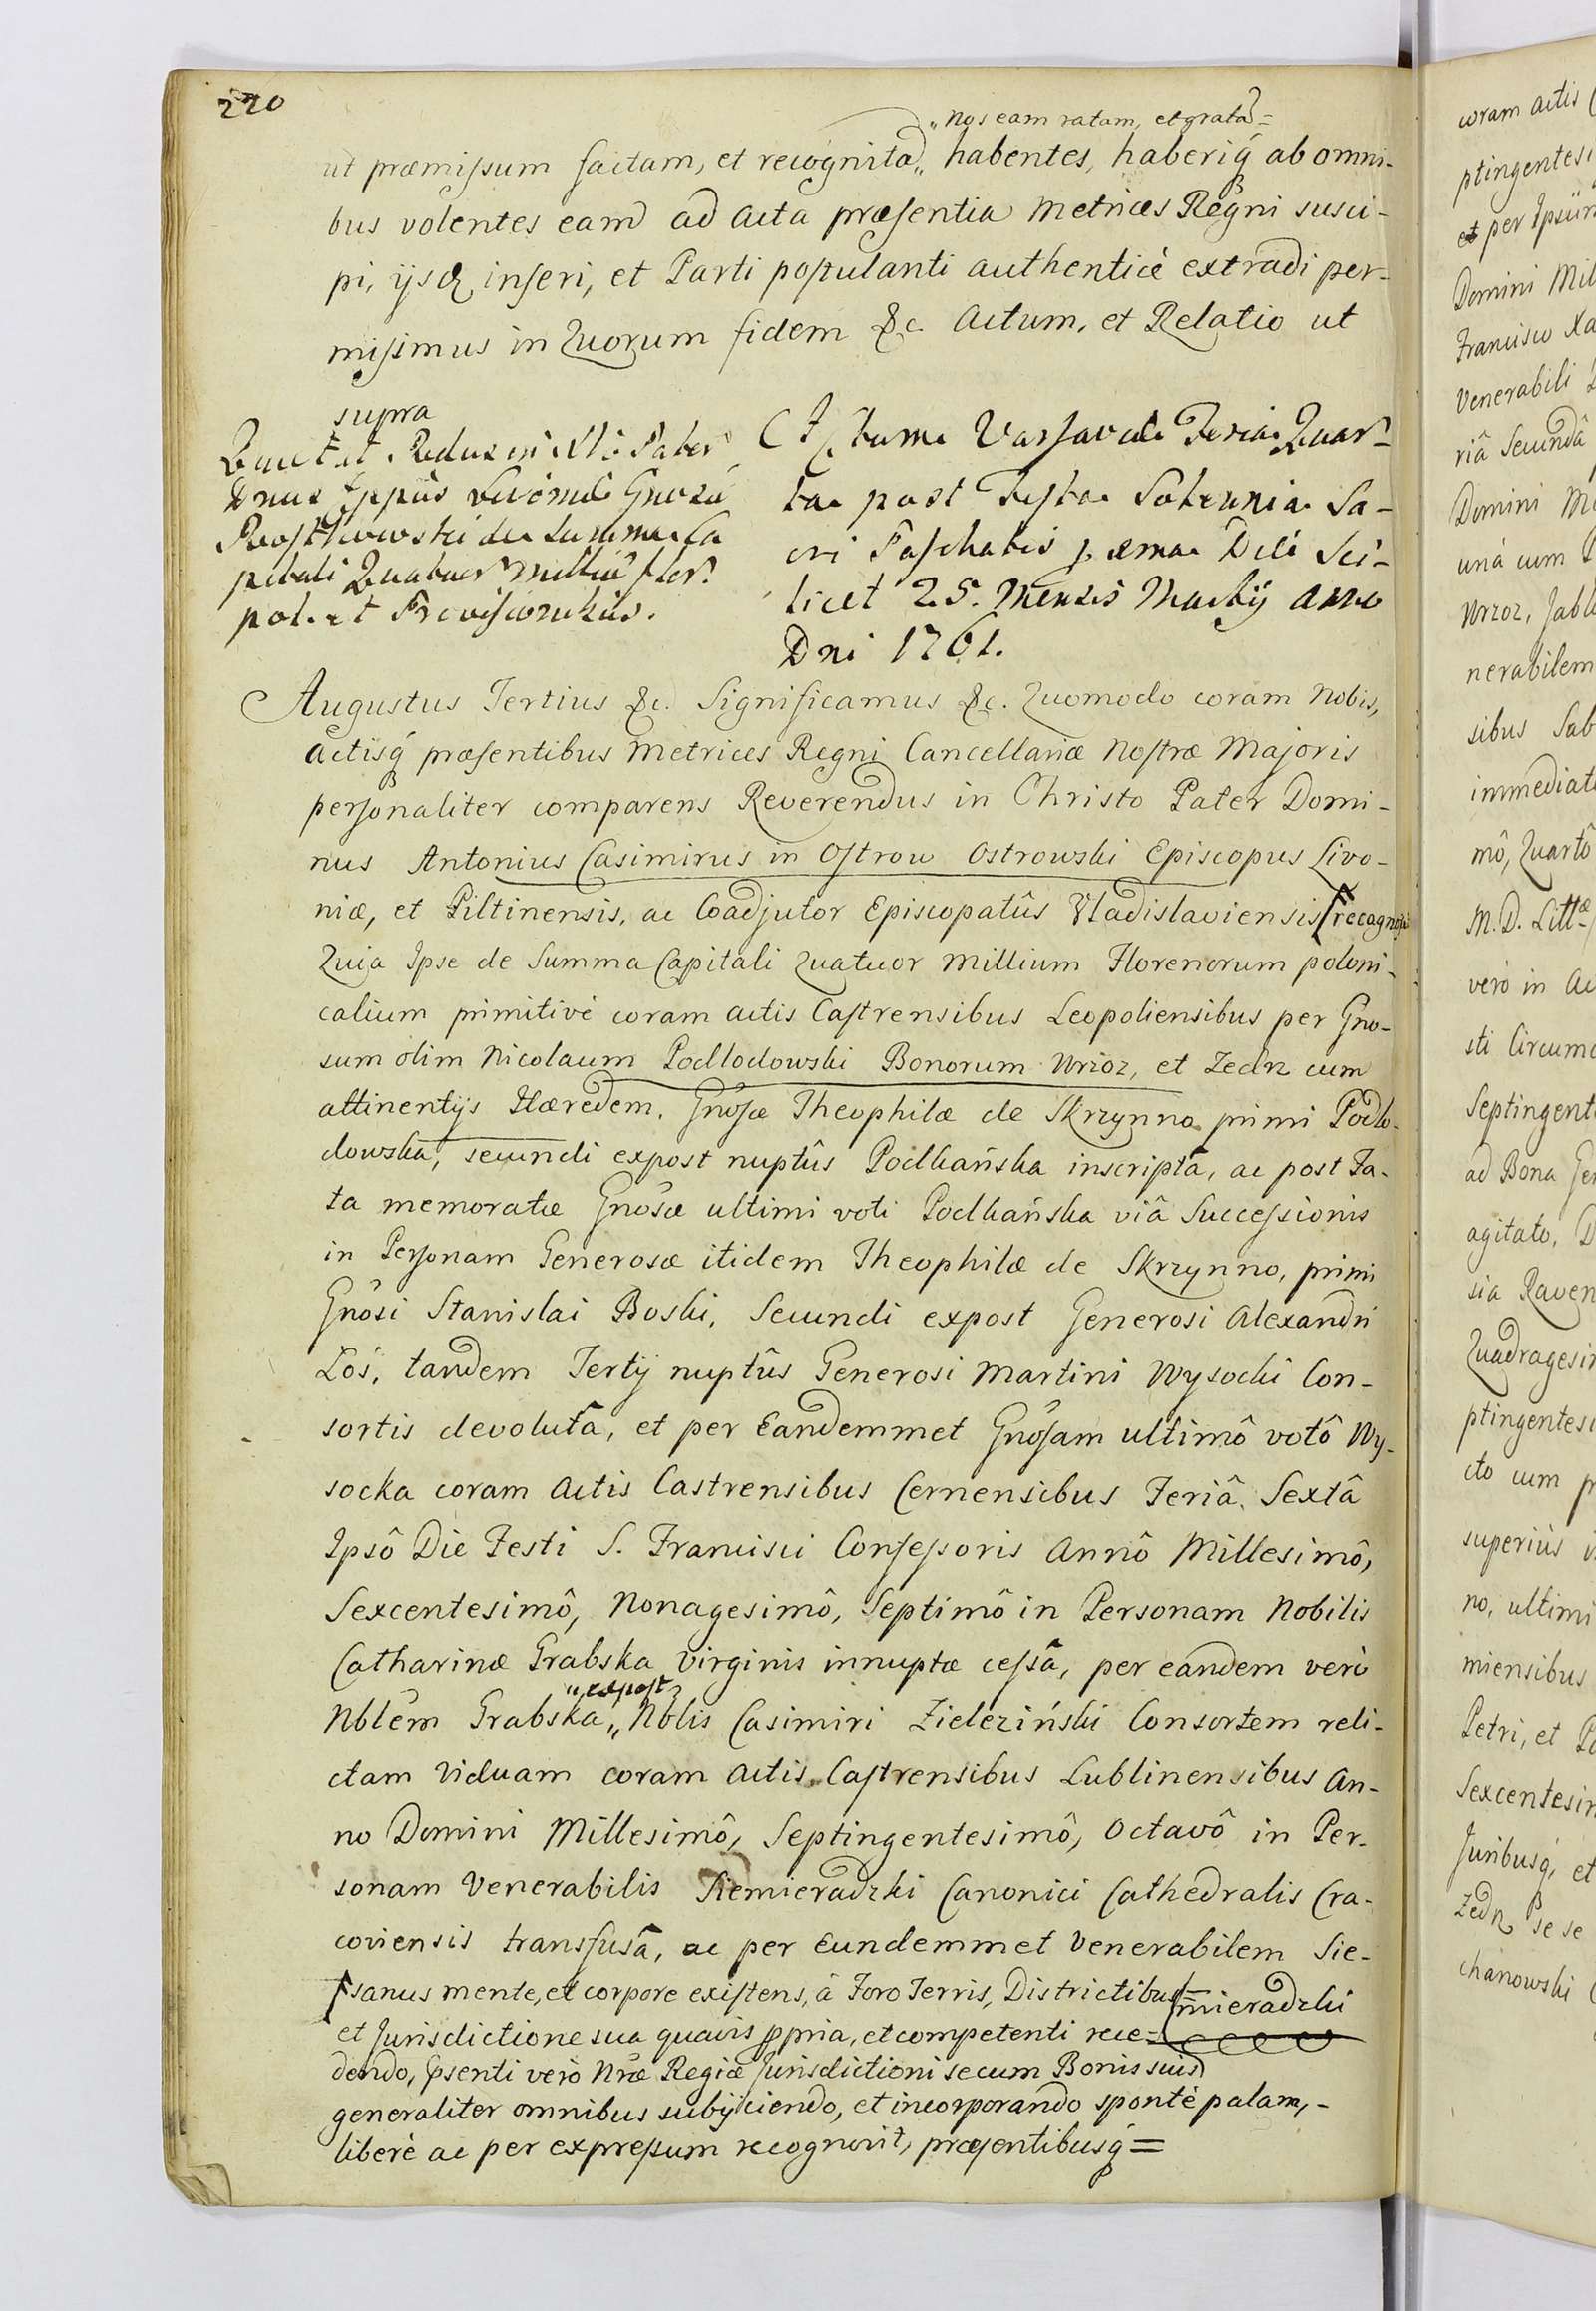 220
„Nos eam ratam, et gratã =
ut præmissum factam, et recognitã„ habentes, haberiq́ ab omni-
bus volentes eam ad Acta præsentia Metrices Regni susci-
pi, ijsq́ inseri, et Parti postulanti authenticè extradi per-
misimus in Quorum fidem &c. Actum, et Relatio ut
supra
Quietat Rdus in Xto Pater
Dnus Eppus Livoniæ Gnosũ
de Summa Ca
pitali Quatuor Milliũ flor:
pol. et Provisionibus.
Actum Varsaviæ Feria Quar-
ta post Festa Solennia Sa-
cri Paschatis proxima Die Sci-
licet 25. Mensis Martij Anno
Dni 1761.
Augustus Tertius &c. Significamus &c. Quomodo coram Nobis,
Actisq́ præsentibus Metrices Regni Cancellariæ Nostræ Majoris
personaliter comparens Reverendus in Christo Pater Domi-
nus Antonius Casimirus in Ostrow Ostrowski Episcopus Livo-
niæ, et Piltinensis, ac Coadjutor Episcopatûs Vladislaviensis recognovit
Quia Ipse de Summa Capitali Quatuor Millium Florenorum poloni-
calium primitivè coram Actis Castrensibus Leopoliensibus per Gno-
sum olim Nicolaum Podlodowski Bonorum Wrzoz, et Zedn cum
attinentijs Hæredem, Gnosæ Theophilæ de Skrzynno primi Podlo-
dowska, secundi expost nuptûs Podkańska inscriptâ, ac post Fa-
ta memoratæ Gnosæ ultimi voti Podkańska viâ Successionis
in Personam Generosæ itidem Theophilæ de Skrzynno, primi
Gnosi Stanislai Boski, Secundi expost Generosi Alexandri
Łoś, tandem Tertij nuptûs Generosi Martini Wysocki Con-
sortis devolutâ, et per Eandemmet Gnosam ultimô votô Wy-
socka coram Actis Castrensibus Cernensibus Feriâ Sextâ
Ipsô Die Festi S. Francisci Confessoris Annô Millesimô,
Sexcentesimô, Nonagesimô, Septimô in Personam Nobilis
Catharinæ Grabska Virginis innuptæ cessâ, per eandem verò
„expost
Nblem Grabska„ Nblis Casimiri Zieleziński Consortem reli-
ctam Viduam coram Actis Castrensibus Lublinensibus An-
no Domini Millesimô, Septingentesimô, Octavô in Per-
sonam Venerabilis Siemieradzki Canonici Cathedralis Cra-
coviensis transfusâ, ac per Eundemmet Venerabilem Sie-
mieradzki
sanus mente, et corpore existens, à Foro Terris, Districtibus
et Jurisdictione sua quavis ppria, et competenti rece-
dendo, psenti verò Nræ Regiæ Jurisdictioni secum Bonis suis
generaliter omnibus subijciendo, et incorporando spontè palam,-
liberè ac per expressum recognovit, præsentibusq́ =
coram Actis
ptingentesi
et per Ipsum
Domini Mil
Francisco Xa
Venerabili
riâ Secundâ
Domini Mi
unà cum
Wrzoz, Jabl
nerabilem
sibus Sab
immediat
mô, Quartô
M. D. Littæ
verò in Ac
sti Circumc
Septingent
ad Bona Ger
agitato, D
sia Raven
Quadragesim
ptingentesi
cto cum p
superiùs
no, ultimi
miensibus
Petri, et Pa
Sexcentesim
Juribusq́, et
Zedn se se
chanowski